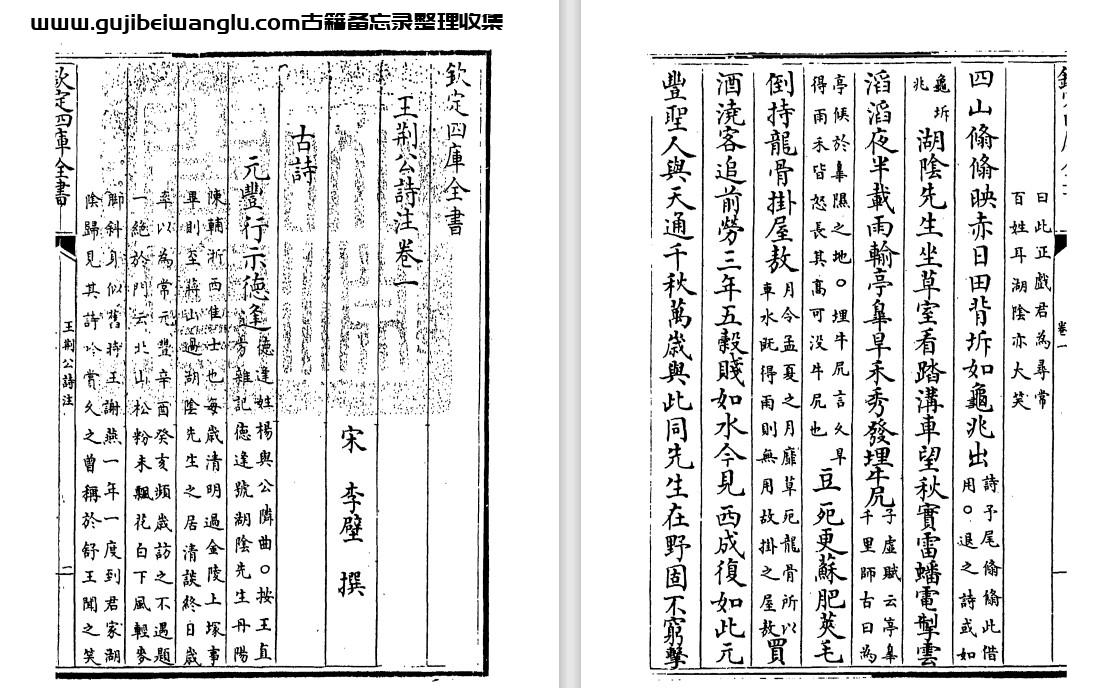 www.gujibeiwanglu.com古籍备忘录整理收集
欽定四庫全書
王荆公詩注卷一
宋 李壁 撰
古詩
元豐行示德逢
德逢姓楊與公隣曲○按王直
方雜記德逢號湖隂先生丹陽
陳輔浙西佳士也每歳清明過金陵上塚事
畢則至蒋山過湖隂先生之居清談終日歳
率以為常元豐辛酉癸亥頻歳訪之不遇題
一絶於門云北山松粉未飄花白下風輕麥
脚斜身似舊時王謝燕一年一度到君家湖
隂歸見其詩吟賞久之曽稱於舒王聞之笑
欽定四庫全書
王荆公詩注
二
卷一
曰此正戲君為尋常
百姓耳湖隂亦大笑
四山翛翛映赤日田背坼如龜兆出
詩予尾翛翛此借
用○退之詩或如
龜坼
兆
湖隂先生坐草室看踏溝車望秋實雷蟠電掣雲
滔滔夜半載雨輸亭臯旱禾秀發埋牛尻
子虛賦云亭臯
千里師古曰為
亭候於臯隰之地○埋牛尻言久旱
得雨禾皆怒長其髙可没牛尻也
豆死更蘇肥莢毛
倒持龍骨掛屋敖
月今孟夏之月靡草死龍骨所以
車水既得雨則無用故掛之屋敖
買
酒澆客追前勞三年五穀賤如水今見西成復如此元
豐聖人與天通千秋萬歳與此同先生在野固不窮擊